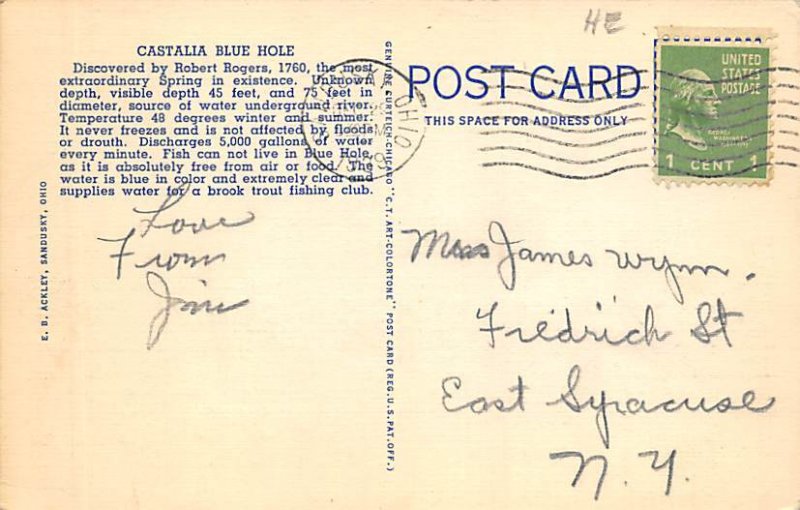 HE
CASTALIA BLUE HOLE
Discovered by Robert Rogers, 1760, the most
extraordinary Spring in existence. Unknown
depth, visible depth 45 feet, and 75 feet in
diameter, source of water underground river.
Temperature 48 degrees winter and summer.
It never freezes and is not affected by floods
or drouth. Discharges 5,000 gallons of water
every minute. Fish can not live in Blue Hole,
as it is absolutely free from air or food. The
water is blue in color and extremely clear and
supplies water for a brook trout fishing club.
Love
From
Jim
E. B. ACKLEY, SANDUSKY, OHIO
GENUINE CURTEICH-CHICAGO "C.T. ART-COLORTONE" POST CARD (REG. U.S. PAT. OFF.)
POST CARD
THIS SPACE FOR ADDRESS ONLY
OHIO
UNITED
STATES
POSTAGE
1 CENT 1
James Wynn.
Fredrich St
East Syracuse
N.Y.